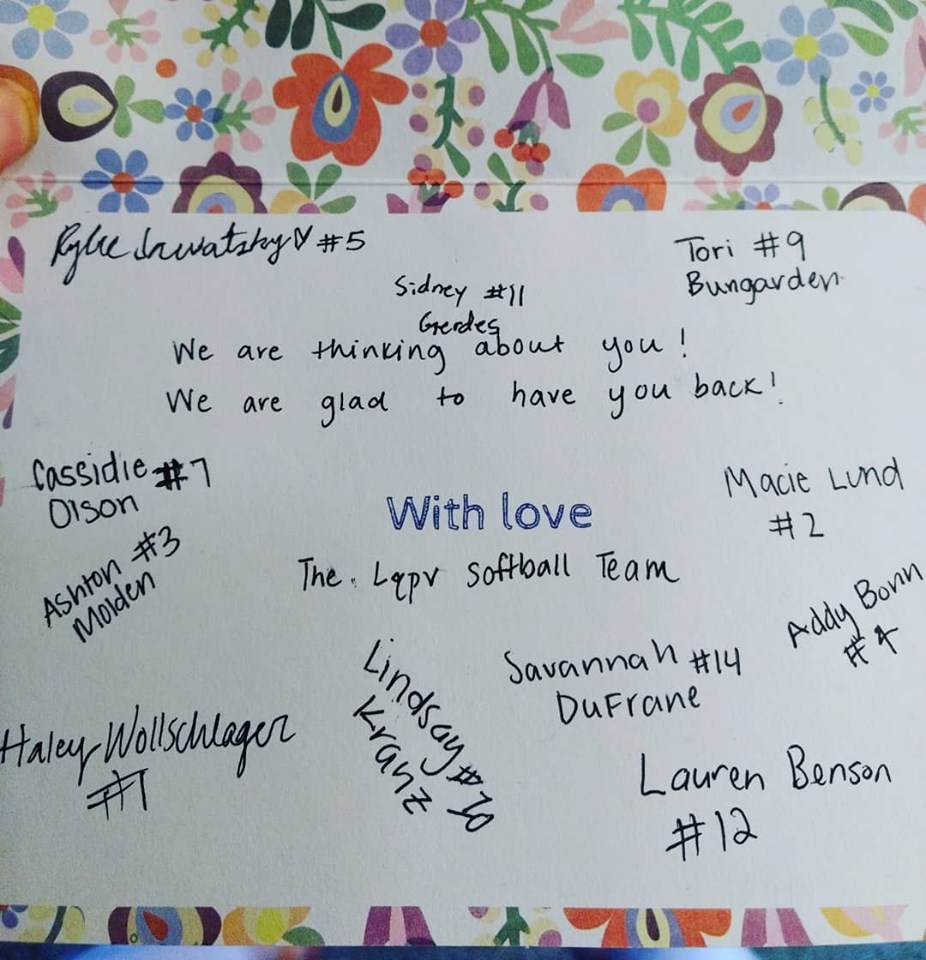 Rylie #5
Tori #9
Bungarden
Sidney #11
Gerdes
We are thinking about you!
We are glad to have you back!
Cassidie #7
Olson
Ashton #3
Molden
With love
The Lqpv Softball Team
Macie Lund
#2
Addy Bonn
#4
Savannah #14
DuFrane
Lindsay #10
Kranz
Haley Wollschlager
#1
Lauren Benson
#12